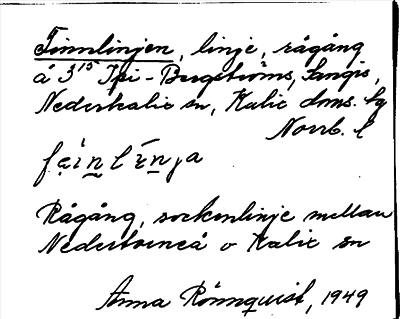 Finnlinjen, linje, rågång
å 3¹⁵ Ipi-Bergströms, Sangis,
Nederkalix sn, Kalix dms. lg
Norrb. l
Rågång, sockenlinje mellan
Nedertorneå o Kalix sn
Anna Rönnquist, 1949